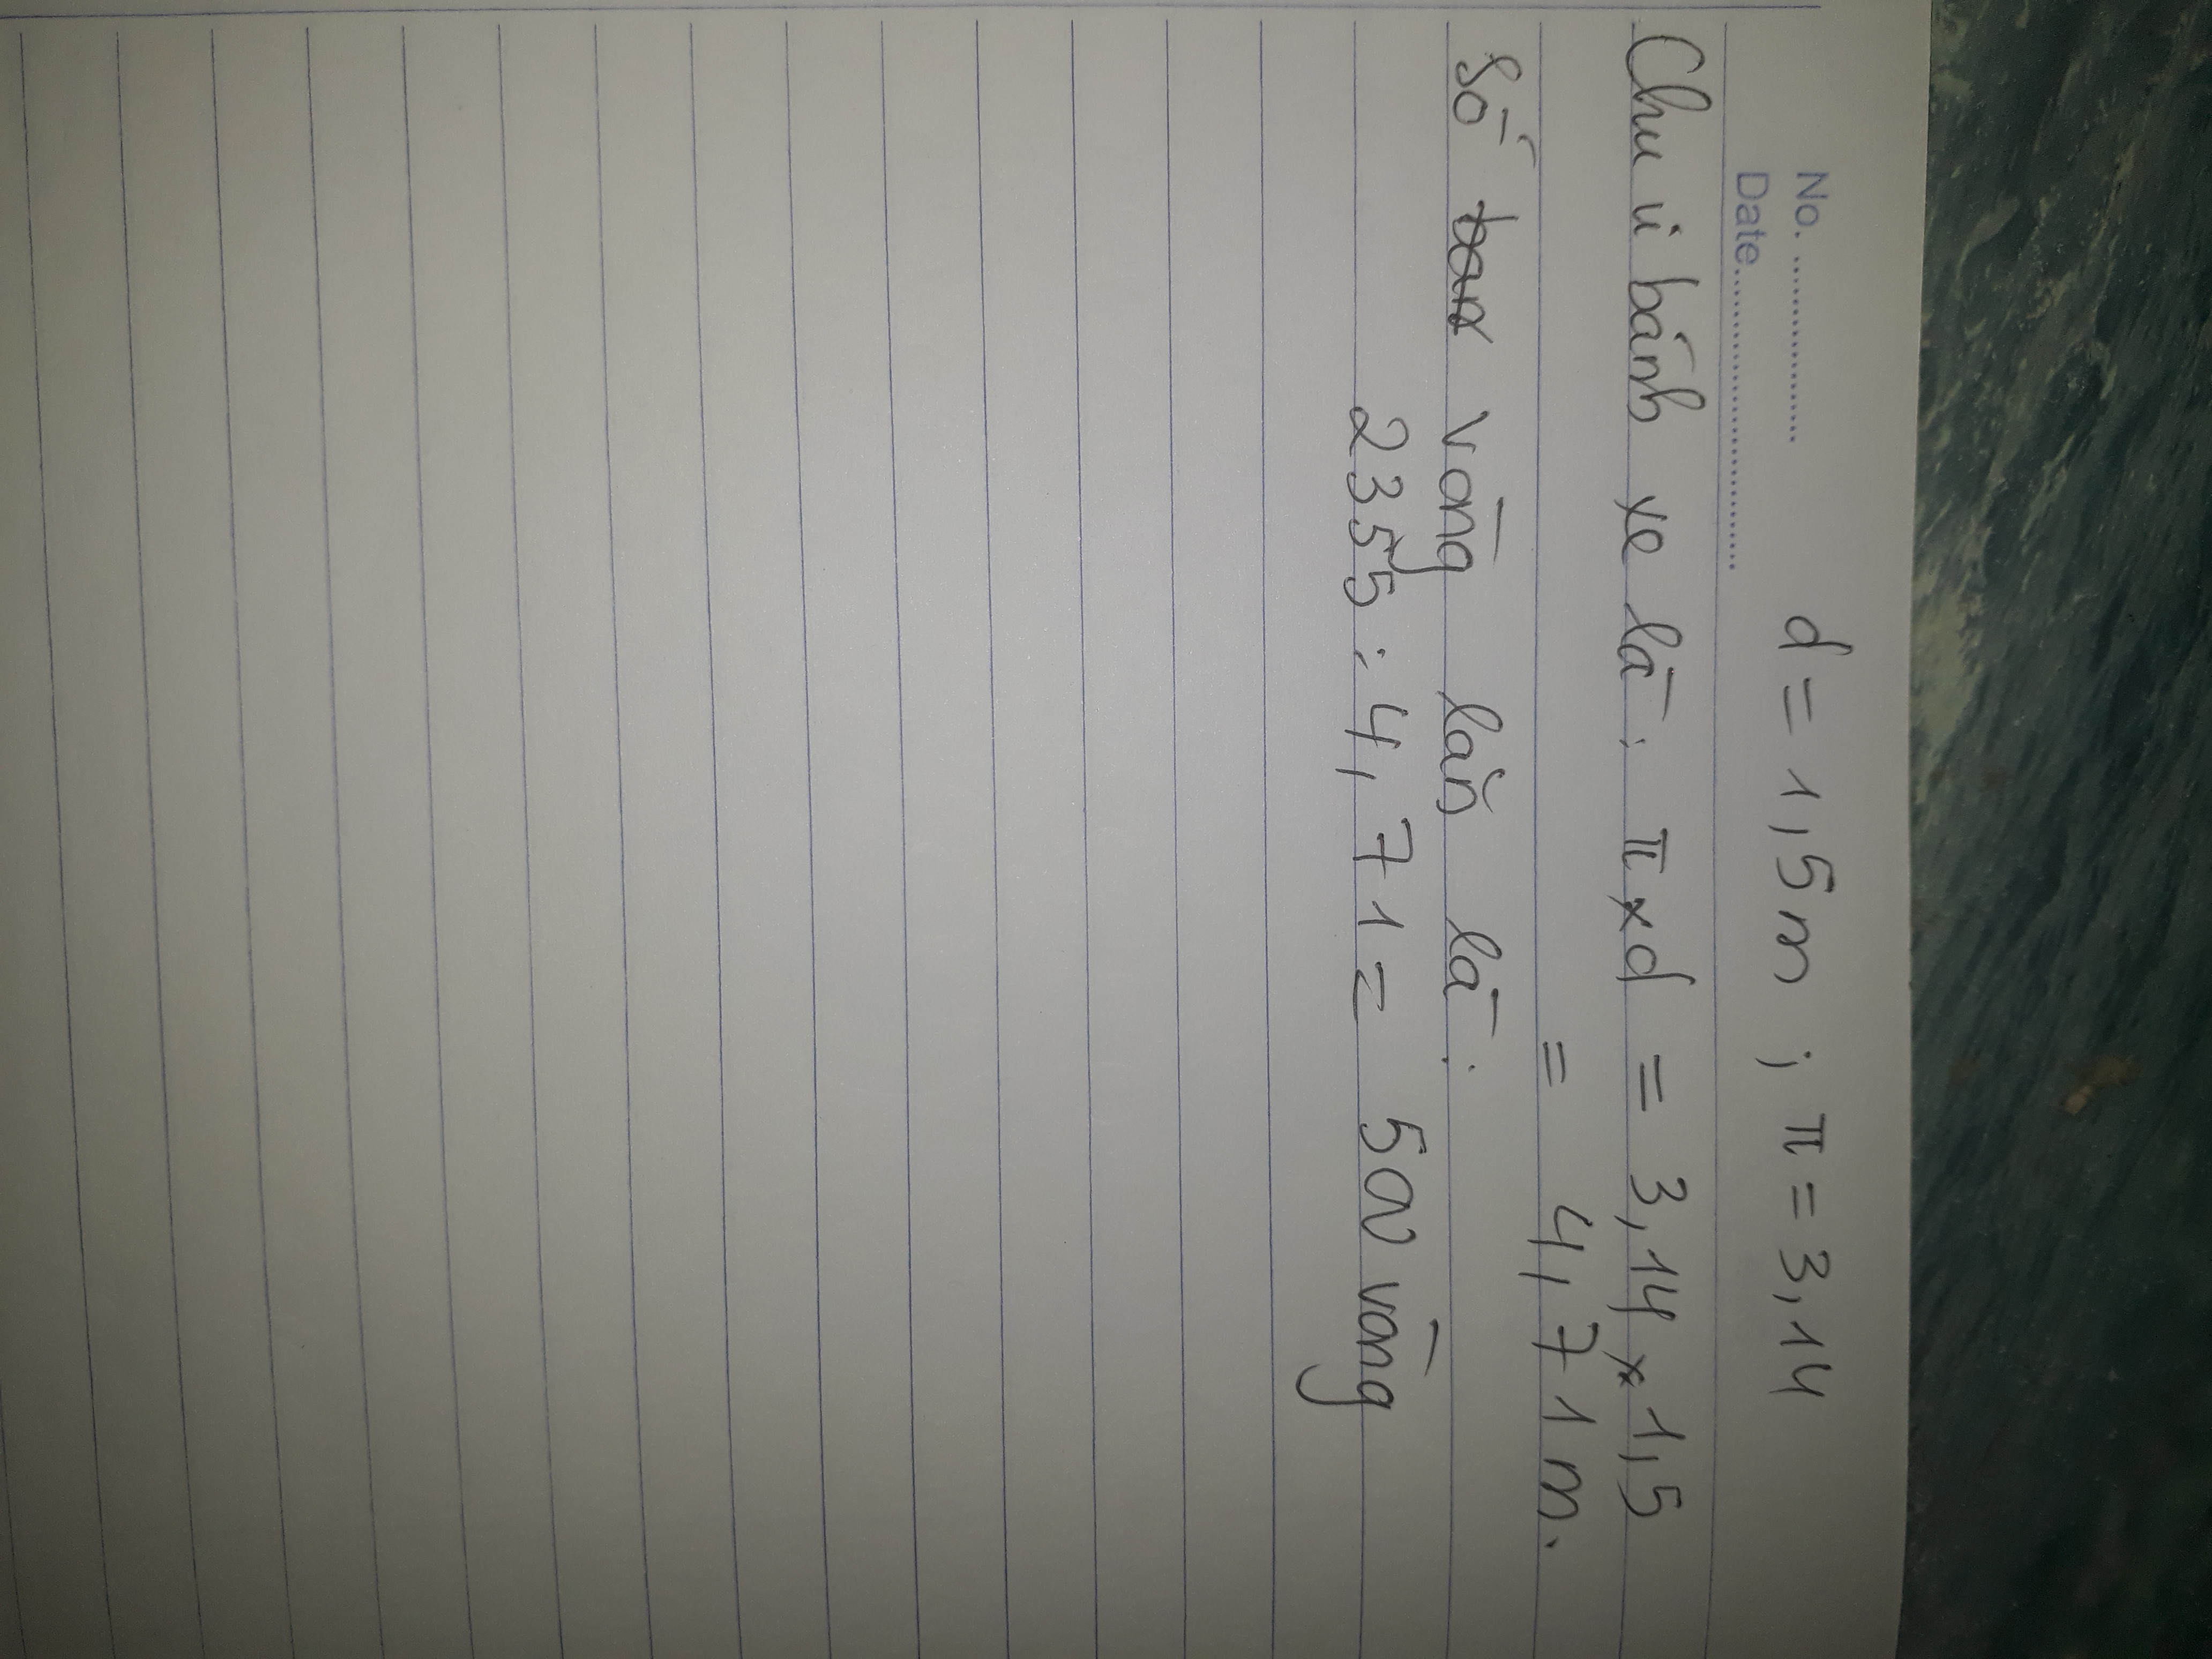 No. ....................
d = 1,5m ; π = 3,14
Date...............................
Chu vi bánh xe là: π x d = 3,14 x 1,5
= 4,71m.
Số vòng lăn là:
2355 : 4,71 = 500 vòng